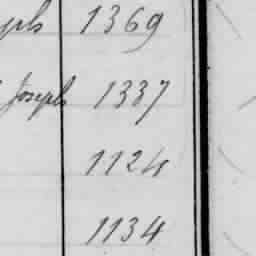 1369
Joseph 1337
1124
1134